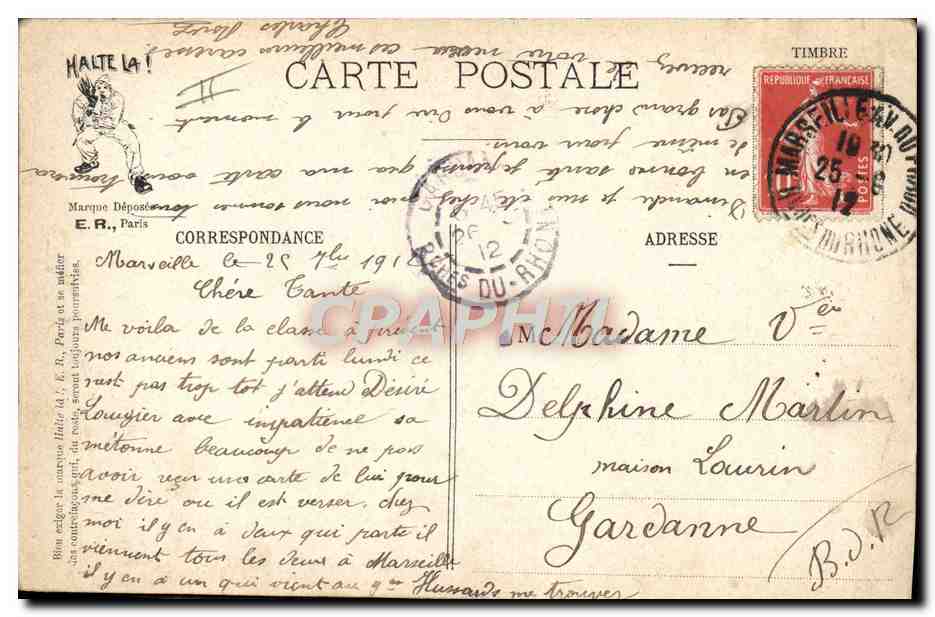 HALTE LA !
Marque Déposée
E. R., Paris
CARTE POSTALE
TIMBRE
REPUBLIQUE FRANÇAISE
POSTES
CORRESPONDANCE
ADRESSE
Marseille le 25 7bre 191
Chére Tante
Me voila de la classe à présent
nos anciens sont parti lundi ce
n'est pas trop tot j'attend Désiré
Laugier avec impatience sa
métonne beaucoup de ne pas
avoir reçu une carte de lui pour
me dire ou il est verser. chez
moi il y en à deux qui parte il
viennent tous les deux à Marseille
il y en à un qui vient au Hussards me trouver
Dimanche je suis été chez moi nous somme tous
en bonne santé je pense que ma carte vous trouvera
de même pour vous.
Pas grand chose à vous dire pour le moment
recevez de votre neveu ces meilleurs caresses
Charles
II
Madame Vve
Delphine Martin
maison Laurin
Gardanne
B. d. R
MARSEILLE
25 - 9
12
26
12
BCHES DU-RHONE
CPARAMA
Bien exiger la marque Halte là ! E. R., Paris et se méfier
des contrefaçons qui, du reste, seront toujours poursuivies.